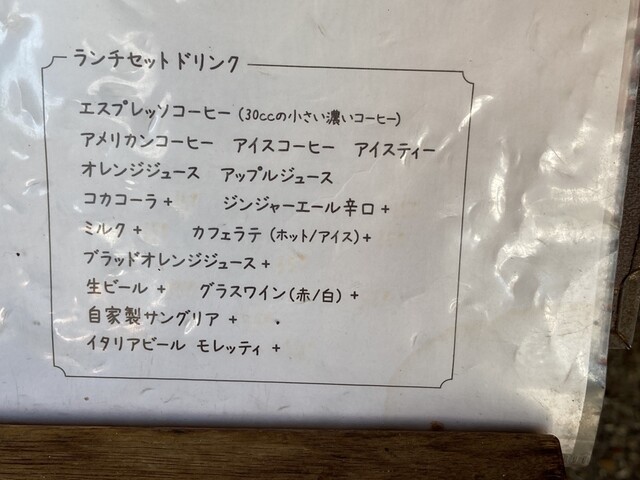 ランチセットドリンク
エスプレッソコーヒー (30ccの小さい濃いコーヒー)
アメリカンコーヒー　アイスコーヒー　アイスティー
オレンジジュース　アップルジュース
コカコーラ +　ジンジャーエール辛口 +
ミルク +　カフェラテ (ホット/アイス) +
ブラッドオレンジジュース +
生ビール +　グラスワイン(赤/白) +
自家製サングリア +
イタリアビール モレッティ +